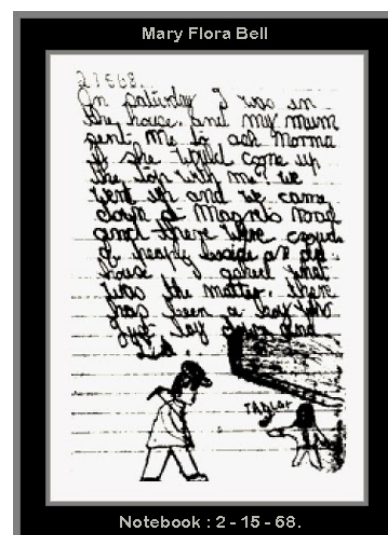 Mary Flora Bell
27568.
On saturday I was in
the house. and my mum
sent me to ask Norma
if she Would come up
the top with me? we
went up and we came
down at Magrets Road
and there were crowds
of people beside an old
house I asked what
was the matter. there
has been a boy who
Just lay down and
Died.
TABLET
Notebook : 2 - 15 - 68.